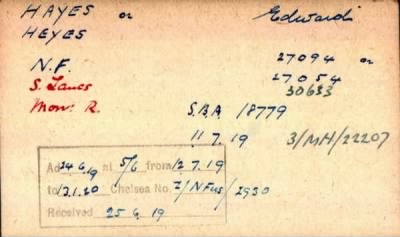 HAYES or Edward
HEYES
N.F. 27094 or
27054
S. Lancs 30633
Mon. R.
S.B.A. 18779
11 7.19 3/MH/22207
Ad 24 6/19 at 5/6 from 12.7.19
to 12.1.20 Chelsea No. 2/NFus/2930
Received 25 6 19